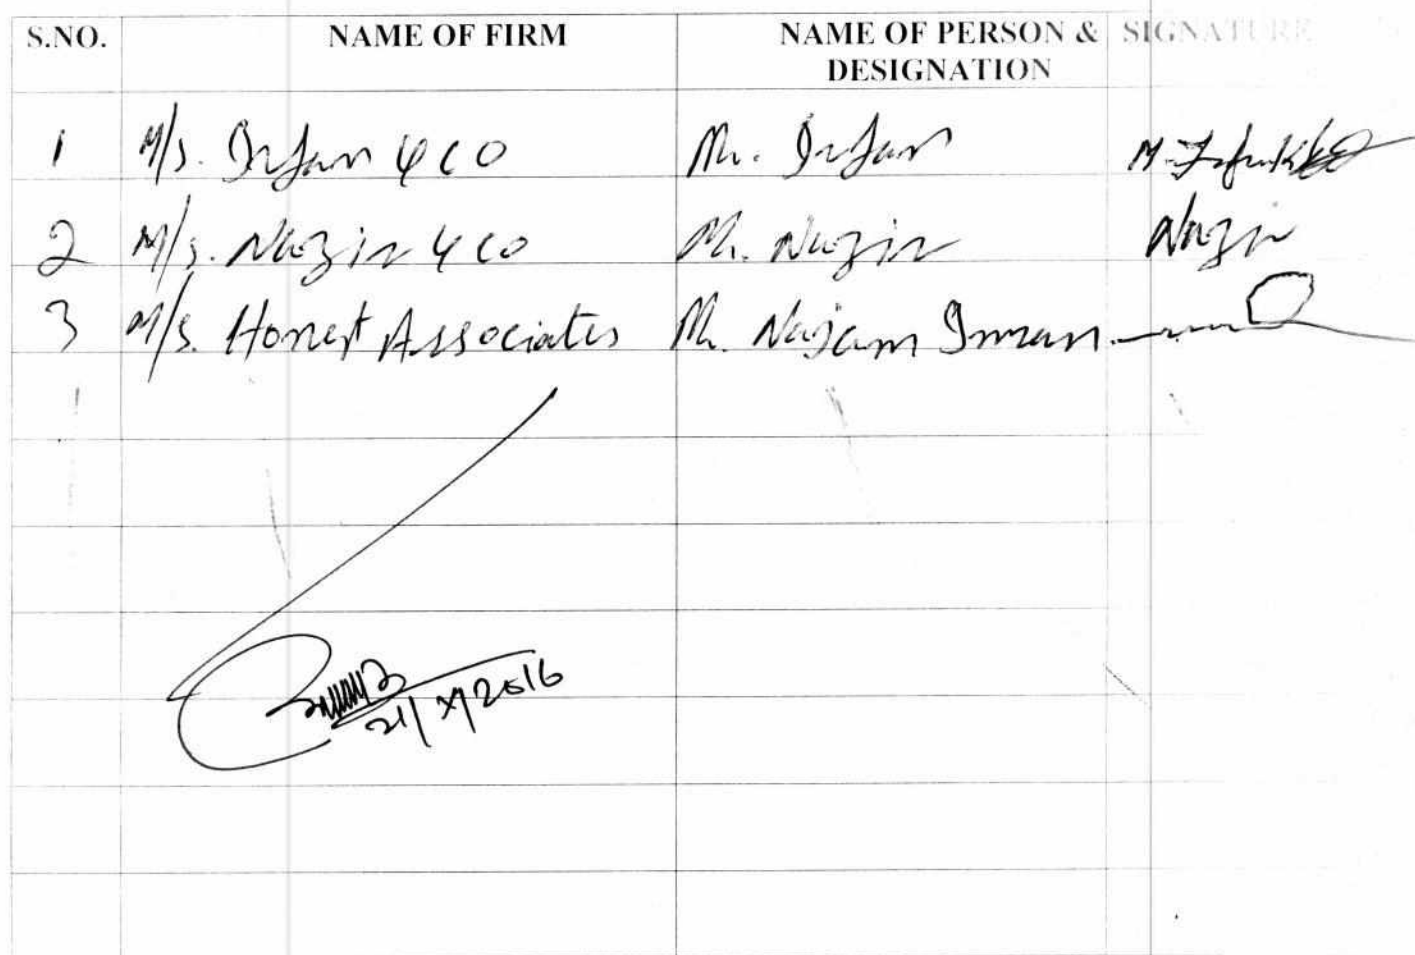 S.NO. NAME OF FIRM NAME OF PERSON & SIGNATURE
DESIGNATION
1 M/s. Irfan & CO Mr. Irfan
2 M/s. Nazir & CO Mr. Nazir Nazir
3 M/s. Honest Associates Mr. Najam Imran
21/X/2016